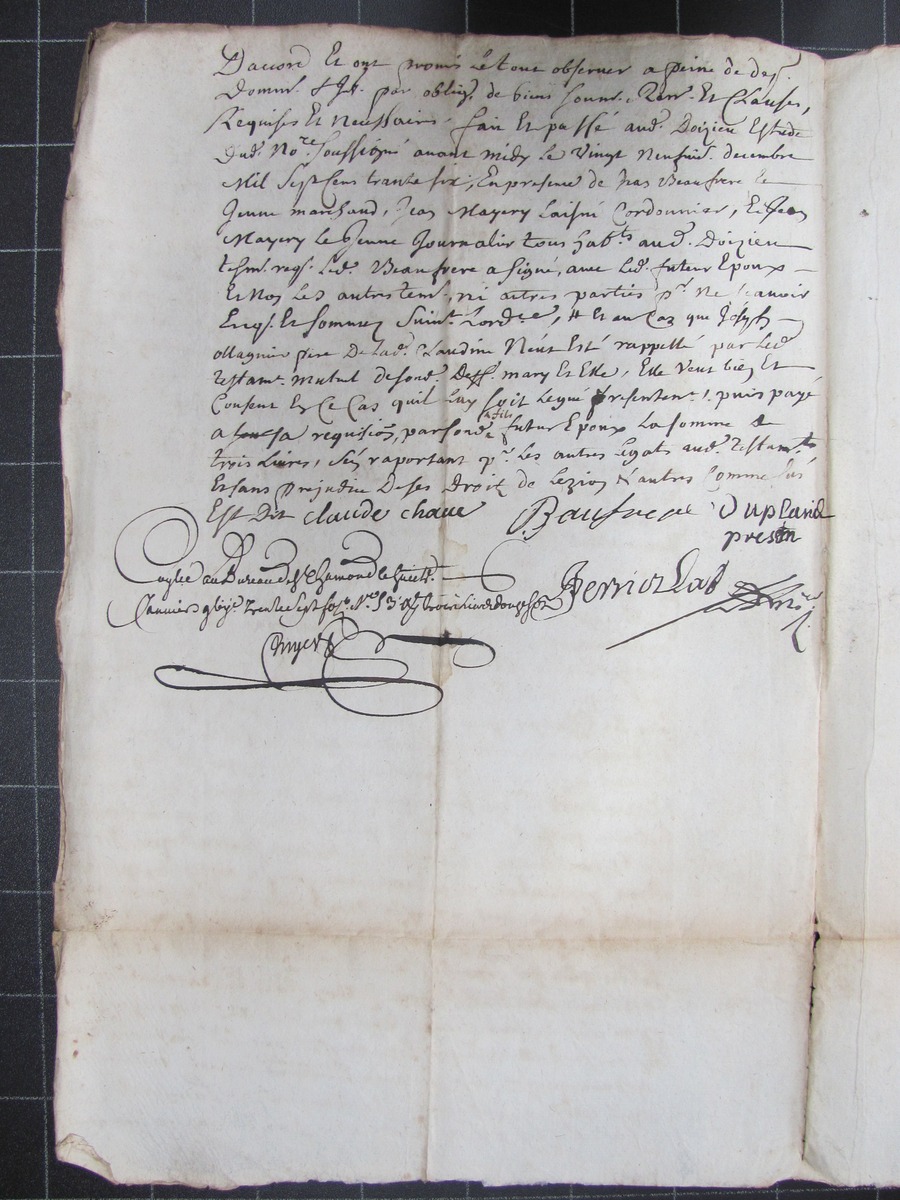 Daccord Et ont promis le tout observer a peine de des.
Domm. & Jt. par oblig. de biens soum. Ren. Et Clauses,
Requises Et Necessaires. fait Et passé aud. Doizieu Estude
Dud. No.re soussigné avant midy le Vingt Neufvie. decembre
Mil Sept Cens trante six, En presence de Beaufrere le
Jeune marchand, Jean Mayery laisné Cordonnier, Et Jean
Mayery le Jeune Journalier tous hab.ts aud. Doizieu
tesm. req. Led. Beaufrere a signé, avec Led. futur Epoux
Et Non Les autres tem. ni autres parties p.r Ne scavoir
Enq. Et sommez suiv.t Lord.ce, # Et au Cas que Joseph
ollagnier pere De lad. Claudine Neut Esté rappellé par led.
testam. mutuel desond. Deff. mary Et Elle, Elle Veut bien Et
Consent En Ce Cas quil luy soit legué presentem. puis payé
a sa requision, par sond. a fils futur Epoux La somme de
trois Livres, raportant p.r Les autres legats aud. testam.t
Et sans prejudice De ses Droit de & autres Comme sus
Est Dit claude chave Baufrere Dupland
presen
au Bureau de St Chamond le huict.
Janvier trente Sept fo. N.o 13